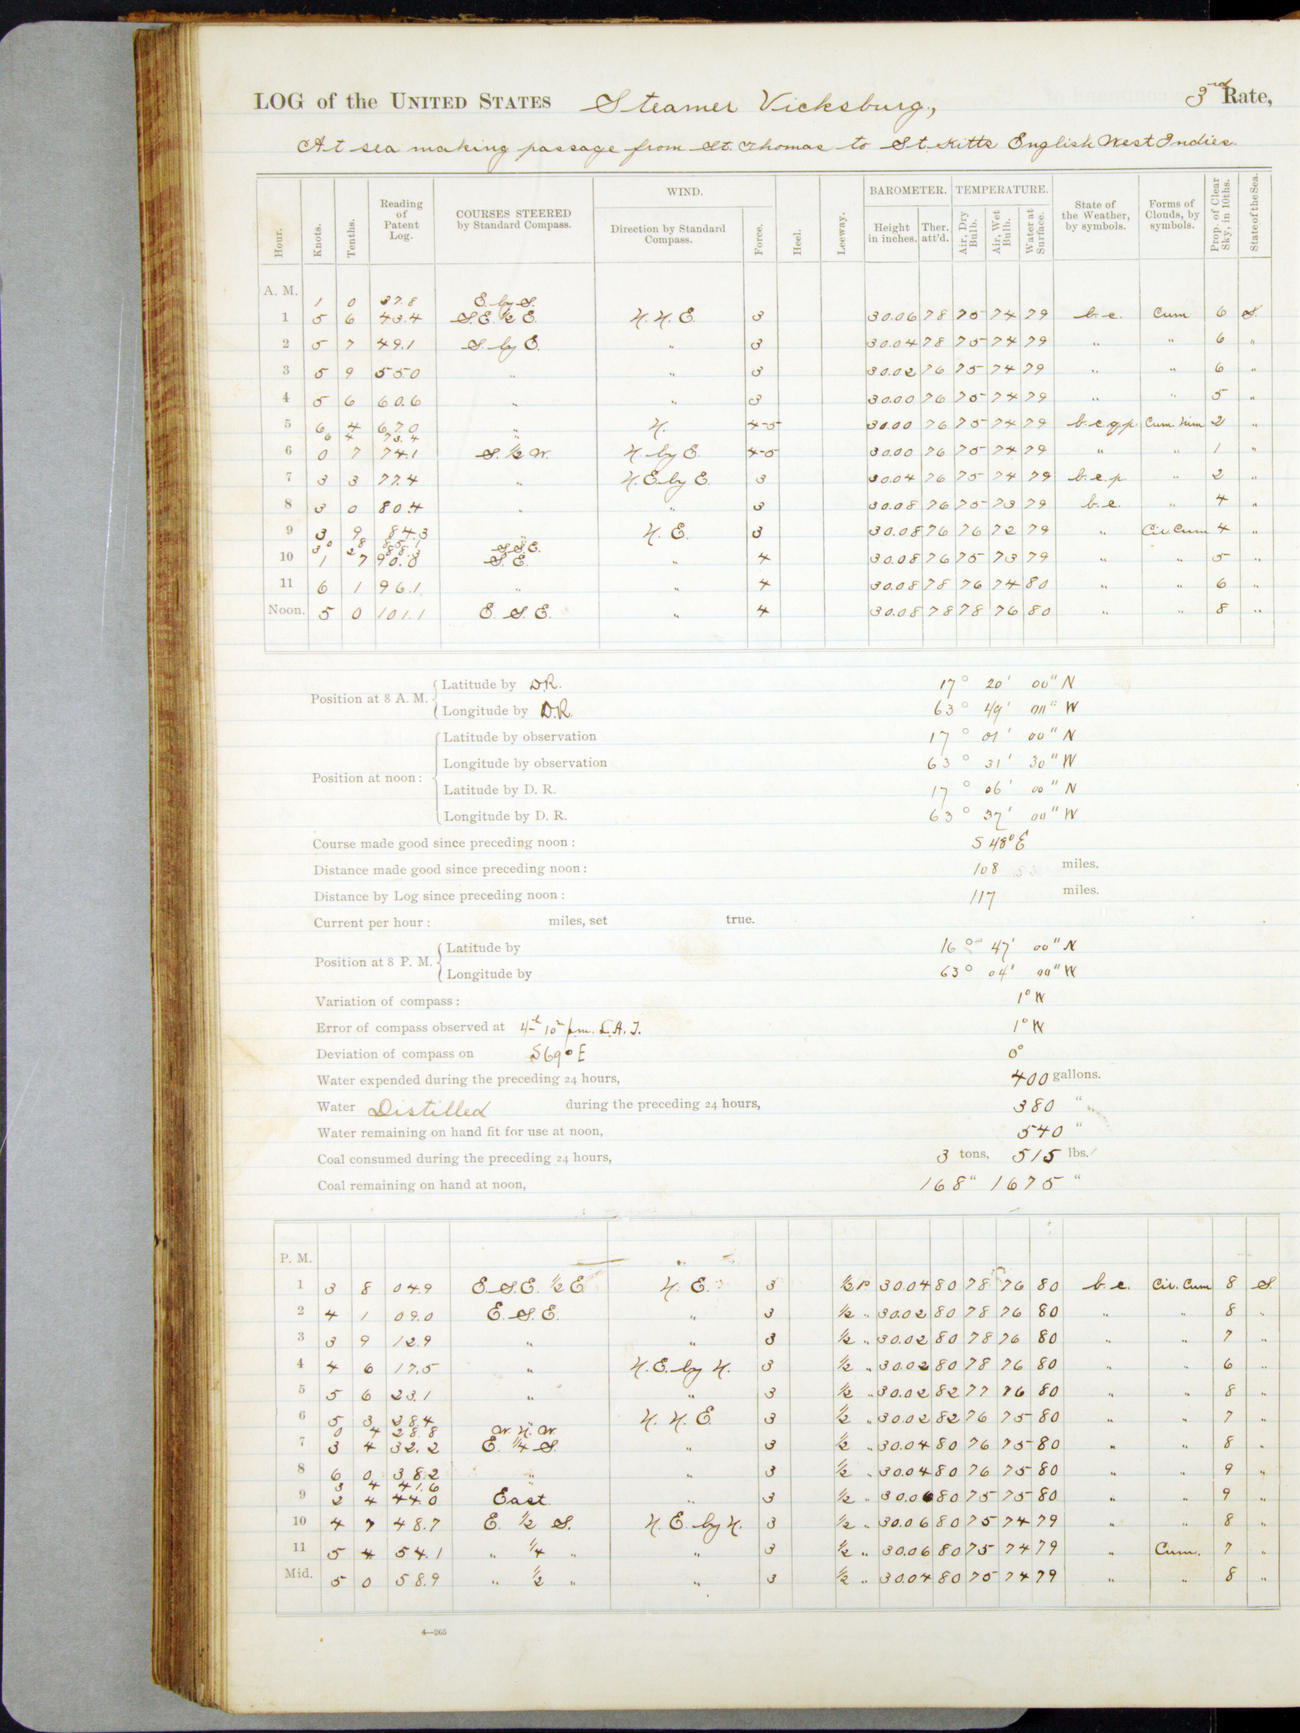 LOG of the UNITED STATES Steamer Vicksburg, 3rd Rate,
At sea making passage from St. Thomas to St. Kitts English West Indies.
Hour. Knots. Tenths. Reading of Patent Log. COURSES STEERED by Standard Compass. WIND. Direction by Standard Compass. Force. Heel. Leeway. BAROMETER. Height in inches. Ther. att'd. TEMPERATURE. Air, Dry Bulb. Air, Wet Bulb. Water at Surface. State of the Weather, by symbols. Forms of Clouds, by symbols. Prop. of Clear Sky, in 10ths. State of the Sea.
A. M.
1 0 37.8 E. by S.
1 5 6 43.4 S.E. ½ E. N. N. E. 3 30.06 78 75 74 79 b.c. Cum 6 S.
2 5 7 49.1 S. by E. " 3 30.04 78 75 74 79 " " 6 "
3 5 9 55.0 " " 3 30.02 76 75 74 79 " " 6 "
4 5 6 60.6 " " 3 30.00 76 75 74 79 " " 5 "
5 6 4 67.0 " N. 4-5 30.00 76 75 74 79 b.c.q.p. Cum. Nim 2 "
6 4 73.4
6 0 7 74.1 S. ½ W. N. by E. 4-5 30.00 76 75 74 79 " " 1 "
7 3 3 77.4 " N.E. by E. 3 30.04 76 75 74 79 b.c.p. " 2 "
8 3 0 80.4 " " 3 30.08 76 75 73 79 b.c. " 4 "
9 3 9 84.3 " N. E. 3 30.08 76 76 72 79 " Cir. Cum 4 "
S.S.E.
10 1 7 90.0 S. E. " 4 30.08 76 75 73 79 " " 5 "
11 6 1 96.1 " " 4 30.08 78 76 74 80 " " 6 "
Noon. 5 0 101.1 E. S. E. " 4 30.08 78 78 76 80 " " 8 "
Position at 8 A. M. Latitude by D.R. 17° 20' 00" N
Longitude by D.R. 63° 49' 00" W
Position at noon: Latitude by observation 17° 01' 00" N
Longitude by observation 63° 31' 30" W
Latitude by D. R. 17° 06' 00" N
Longitude by D. R. 63° 37' 00" W
Course made good since preceding noon: S 48° E
Distance made good since preceding noon: 108 miles.
Distance by Log since preceding noon: 117 miles.
Current per hour: miles, set true.
Position at 8 P. M. Latitude by 16° 47' 00" N
Longitude by 63° 04' 00" W
Variation of compass: 1° W
Error of compass observed at 4h 10m p.m. L.A.T. 1° W
Deviation of compass on S69°E 0°
Water expended during the preceding 24 hours, 400 gallons.
Water Distilled during the preceding 24 hours, 380 "
Water remaining on hand fit for use at noon, 540 "
Coal consumed during the preceding 24 hours, 3 tons, 515 lbs.
Coal remaining on hand at noon, 168 " 1675 "
P. M.
1 3 8 04.9 E. S.E. ½ E N. E. 3 ½ P 30.04 80 78 76 80 b.c. Cir. Cum 8 S.
2 4 1 09.0 E. S. E. " 3 ½ " 30.02 80 78 76 80 " " 8 "
3 3 9 12.9 " " 3 ½ " 30.02 80 78 76 80 " " 7 "
4 4 6 17.5 " N. E. by N. 3 ½ " 30.02 80 78 76 80 " " 6 "
5 5 6 23.1 " " 3 ½ " 30.02 82 77 76 80 " " 8 "
6 5 3 28.4 " N. N. E. 3 ½ " 30.02 82 76 75 80 " " 7 "
0 4 28.8 W. N. W.
7 3 4 32.2 E. ¼ S. " 3 ½ " 30.04 80 76 75 80 " " 8 "
8 6 0 38.2 " " 3 ½ " 30.04 80 76 75 80 " " 9 "
3 4 41.6 "
9 2 4 44.0 East. " 3 ½ " 30.06 80 75 75 80 " " 9 "
10 4 7 48.7 E. ½ S. N. E. by N. 3 ½ " 30.06 80 75 74 79 " " 8 "
11 5 4 54.1 " ¼ " " 3 ½ " 30.06 80 75 74 79 " Cum. 7 "
Mid. 5 0 58.9 " ½ " " 3 ½ " 30.04 80 75 74 79 " " 8 "
4—265